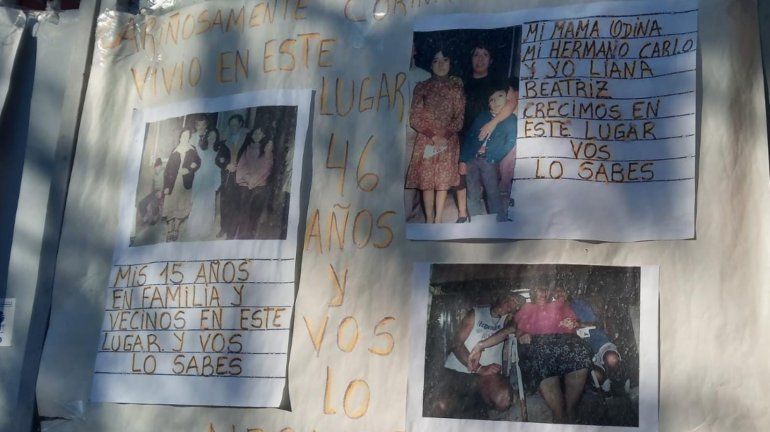 CARIÑOSAMENTE
VIVIO EN ESTE
LUGAR
46
AÑOS
Y
VOS
LO
MIS 15 AÑOS
EN FAMILIA Y
VECINOS EN ESTE
LUGAR Y VOS
LO SABES
MI MAMA UDINA
MI HERMAÑO CARLO
Y YO LIANA
BEATRIZ
CRECIMOS EN
ESTE LUGAR
VOS
LO SABES